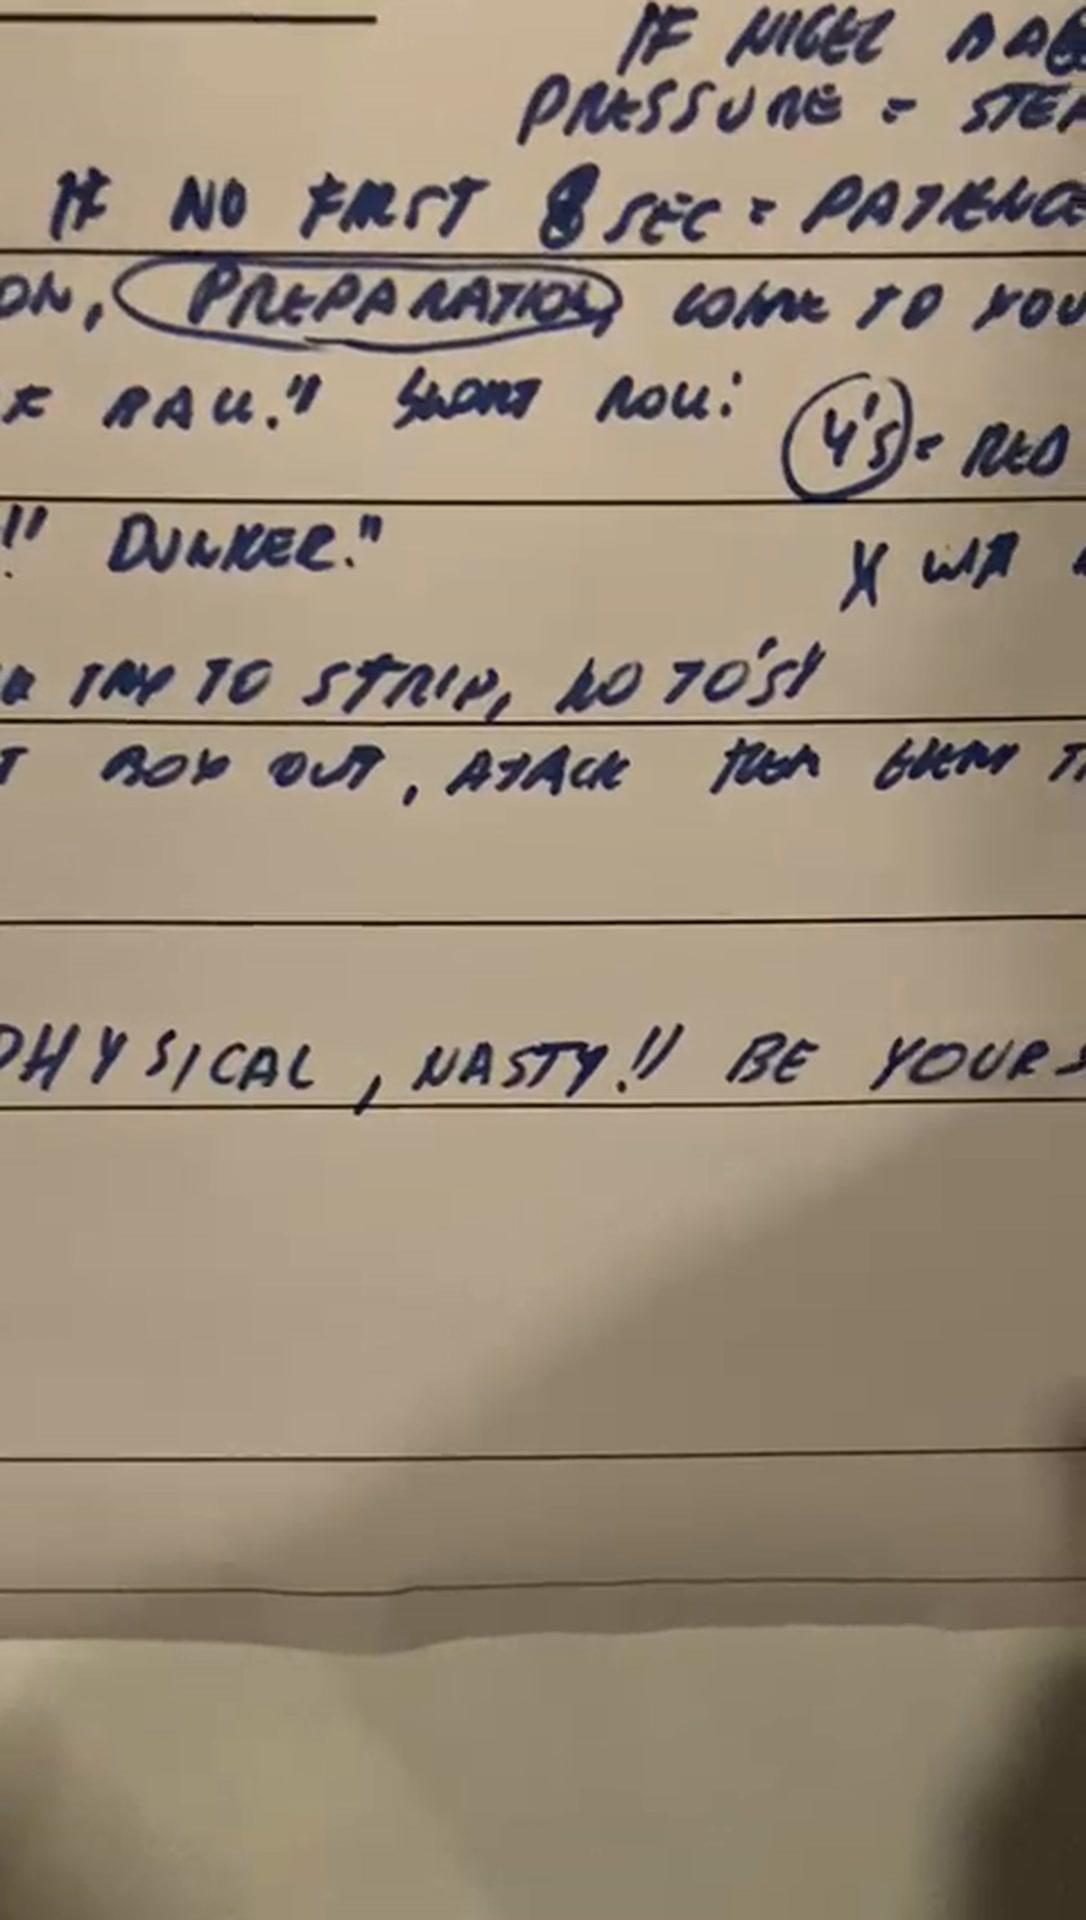 IF NIGEL BAL
PRESSURE = STEP
IF NO FIRST 8 SEC = PATIENCE
ON, PREPARATION, COME TO YOU
E BALL." SHORT ROLL:
4'S = RED
!! DUNKER."
X WIT
TRY TO STRIP, NO TO'S!
T BOX OUT, ATTACK THEM EVERY
PHYSICAL, NASTY!! BE YOURS